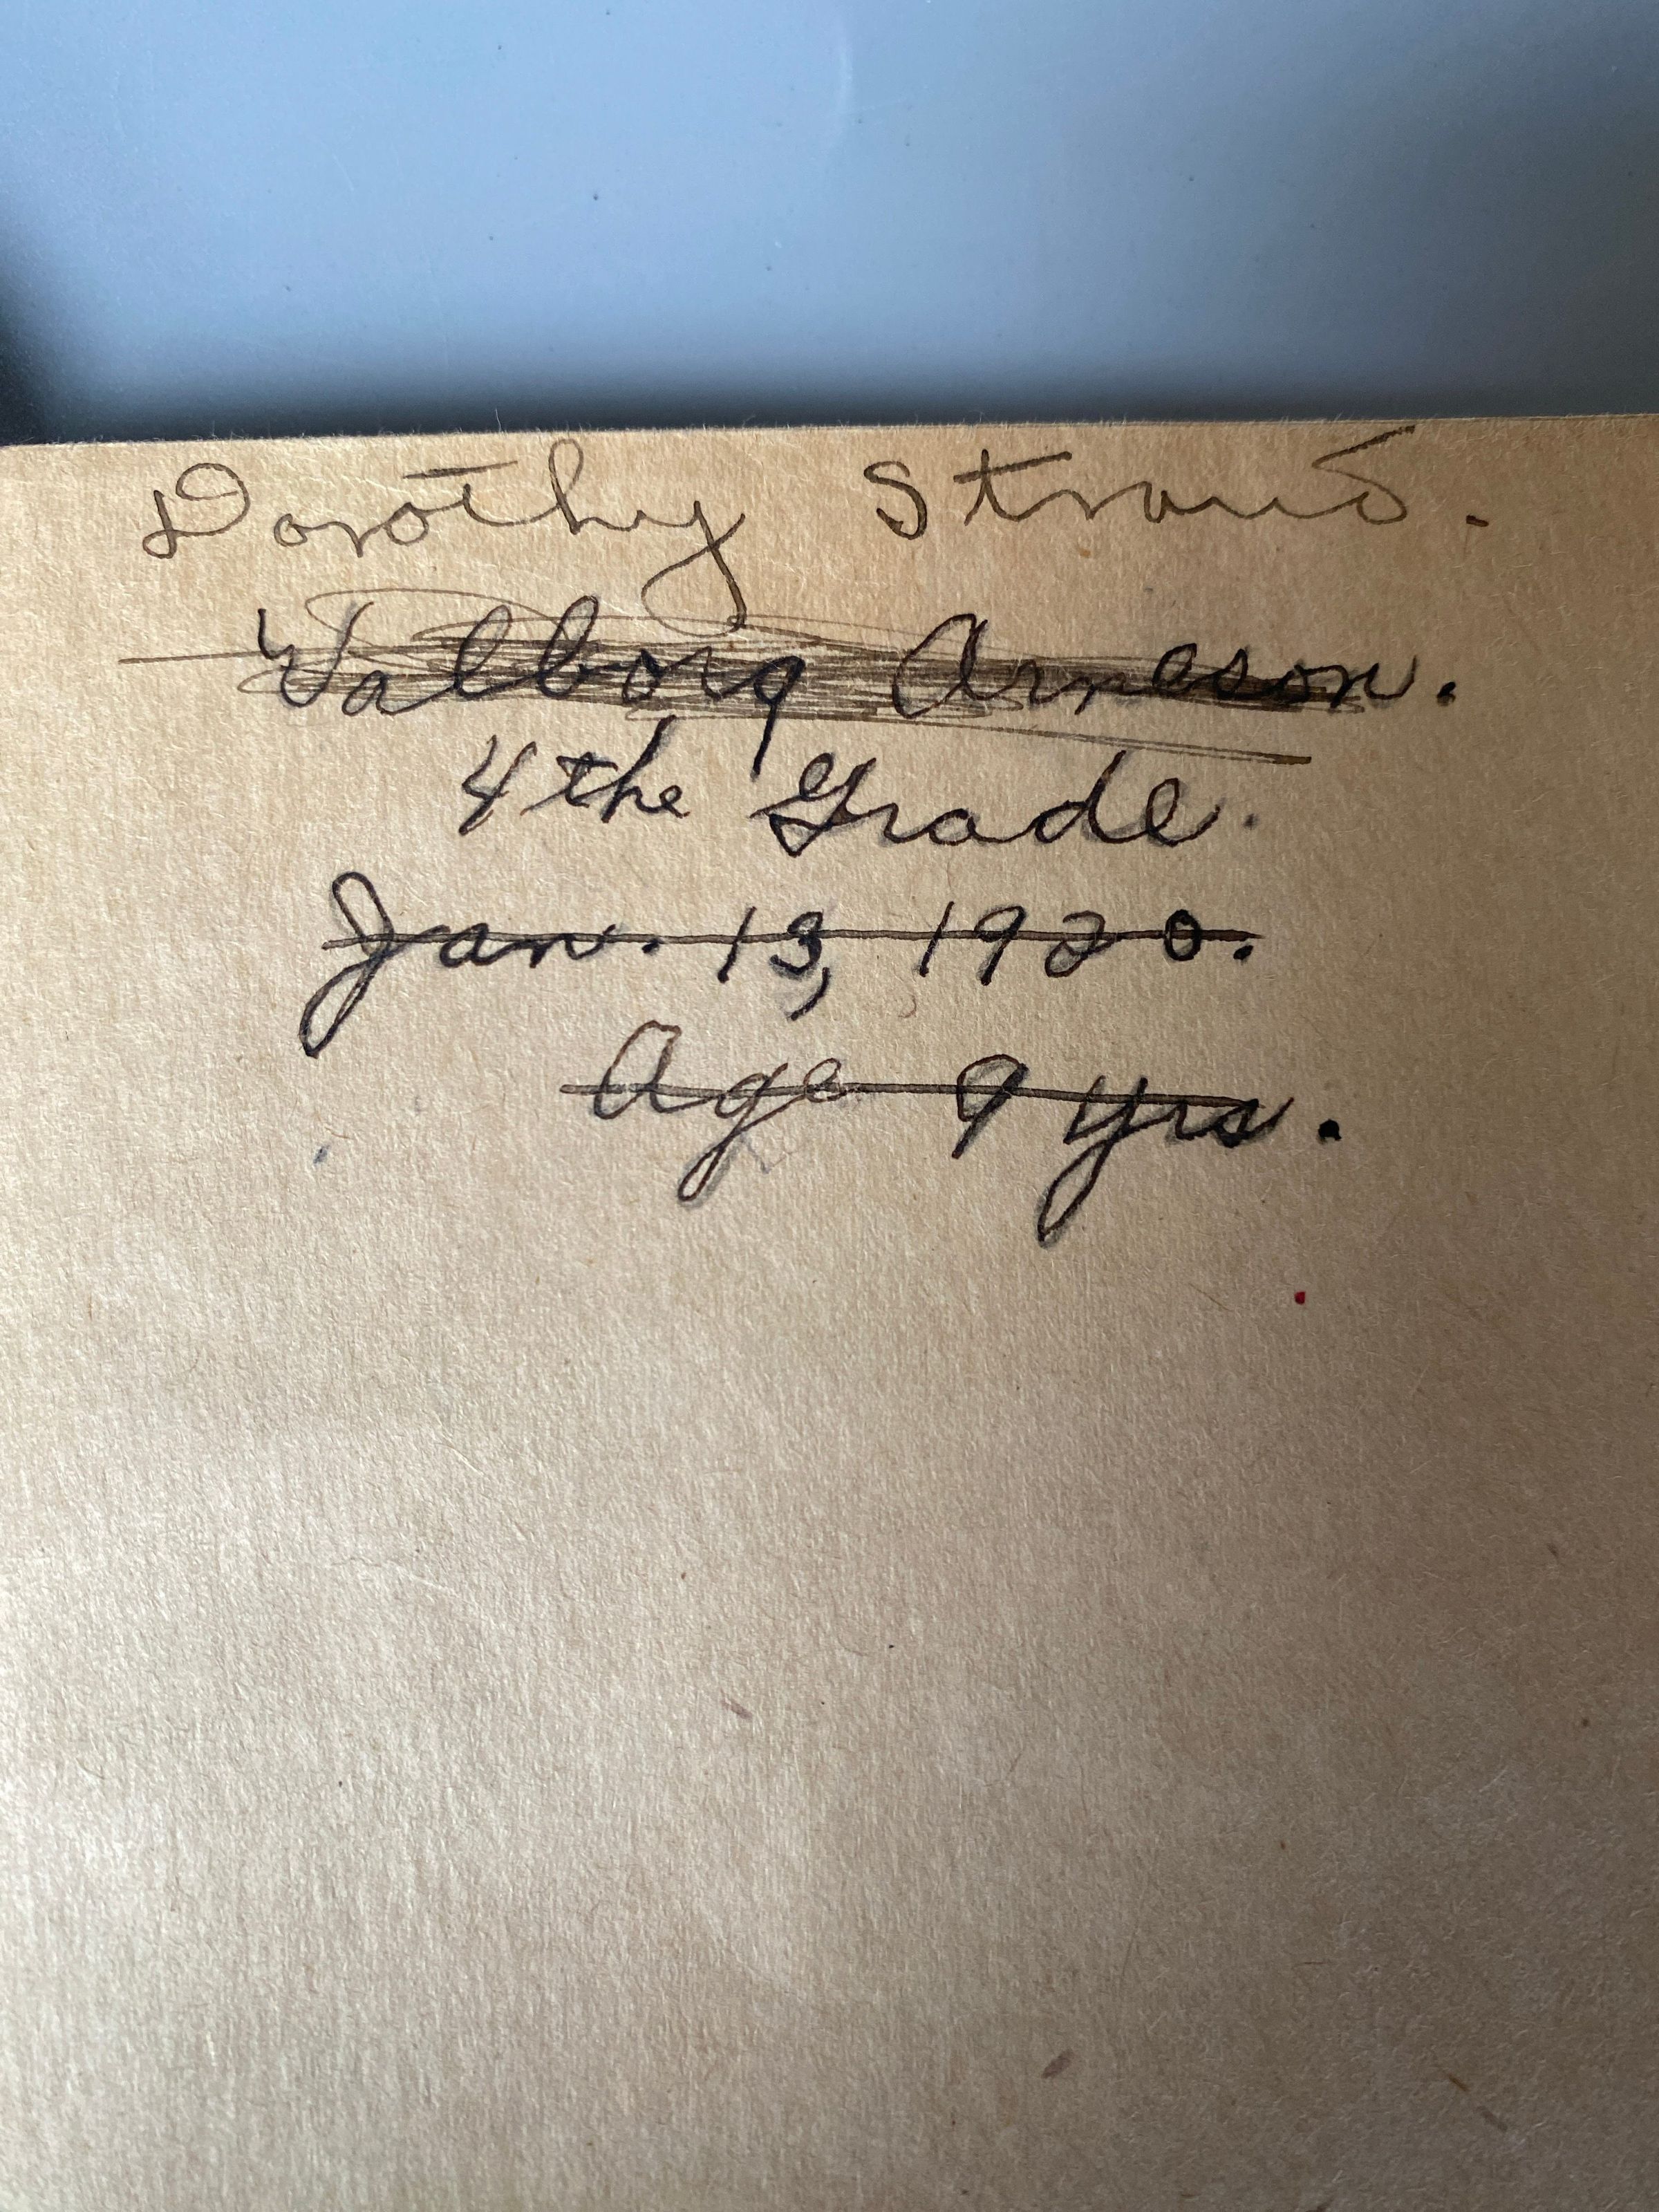 Dorothy Strand.
Valborg Arneson.
4 the Grade.
Jan. 13, 1920.
Age 9 yrs.